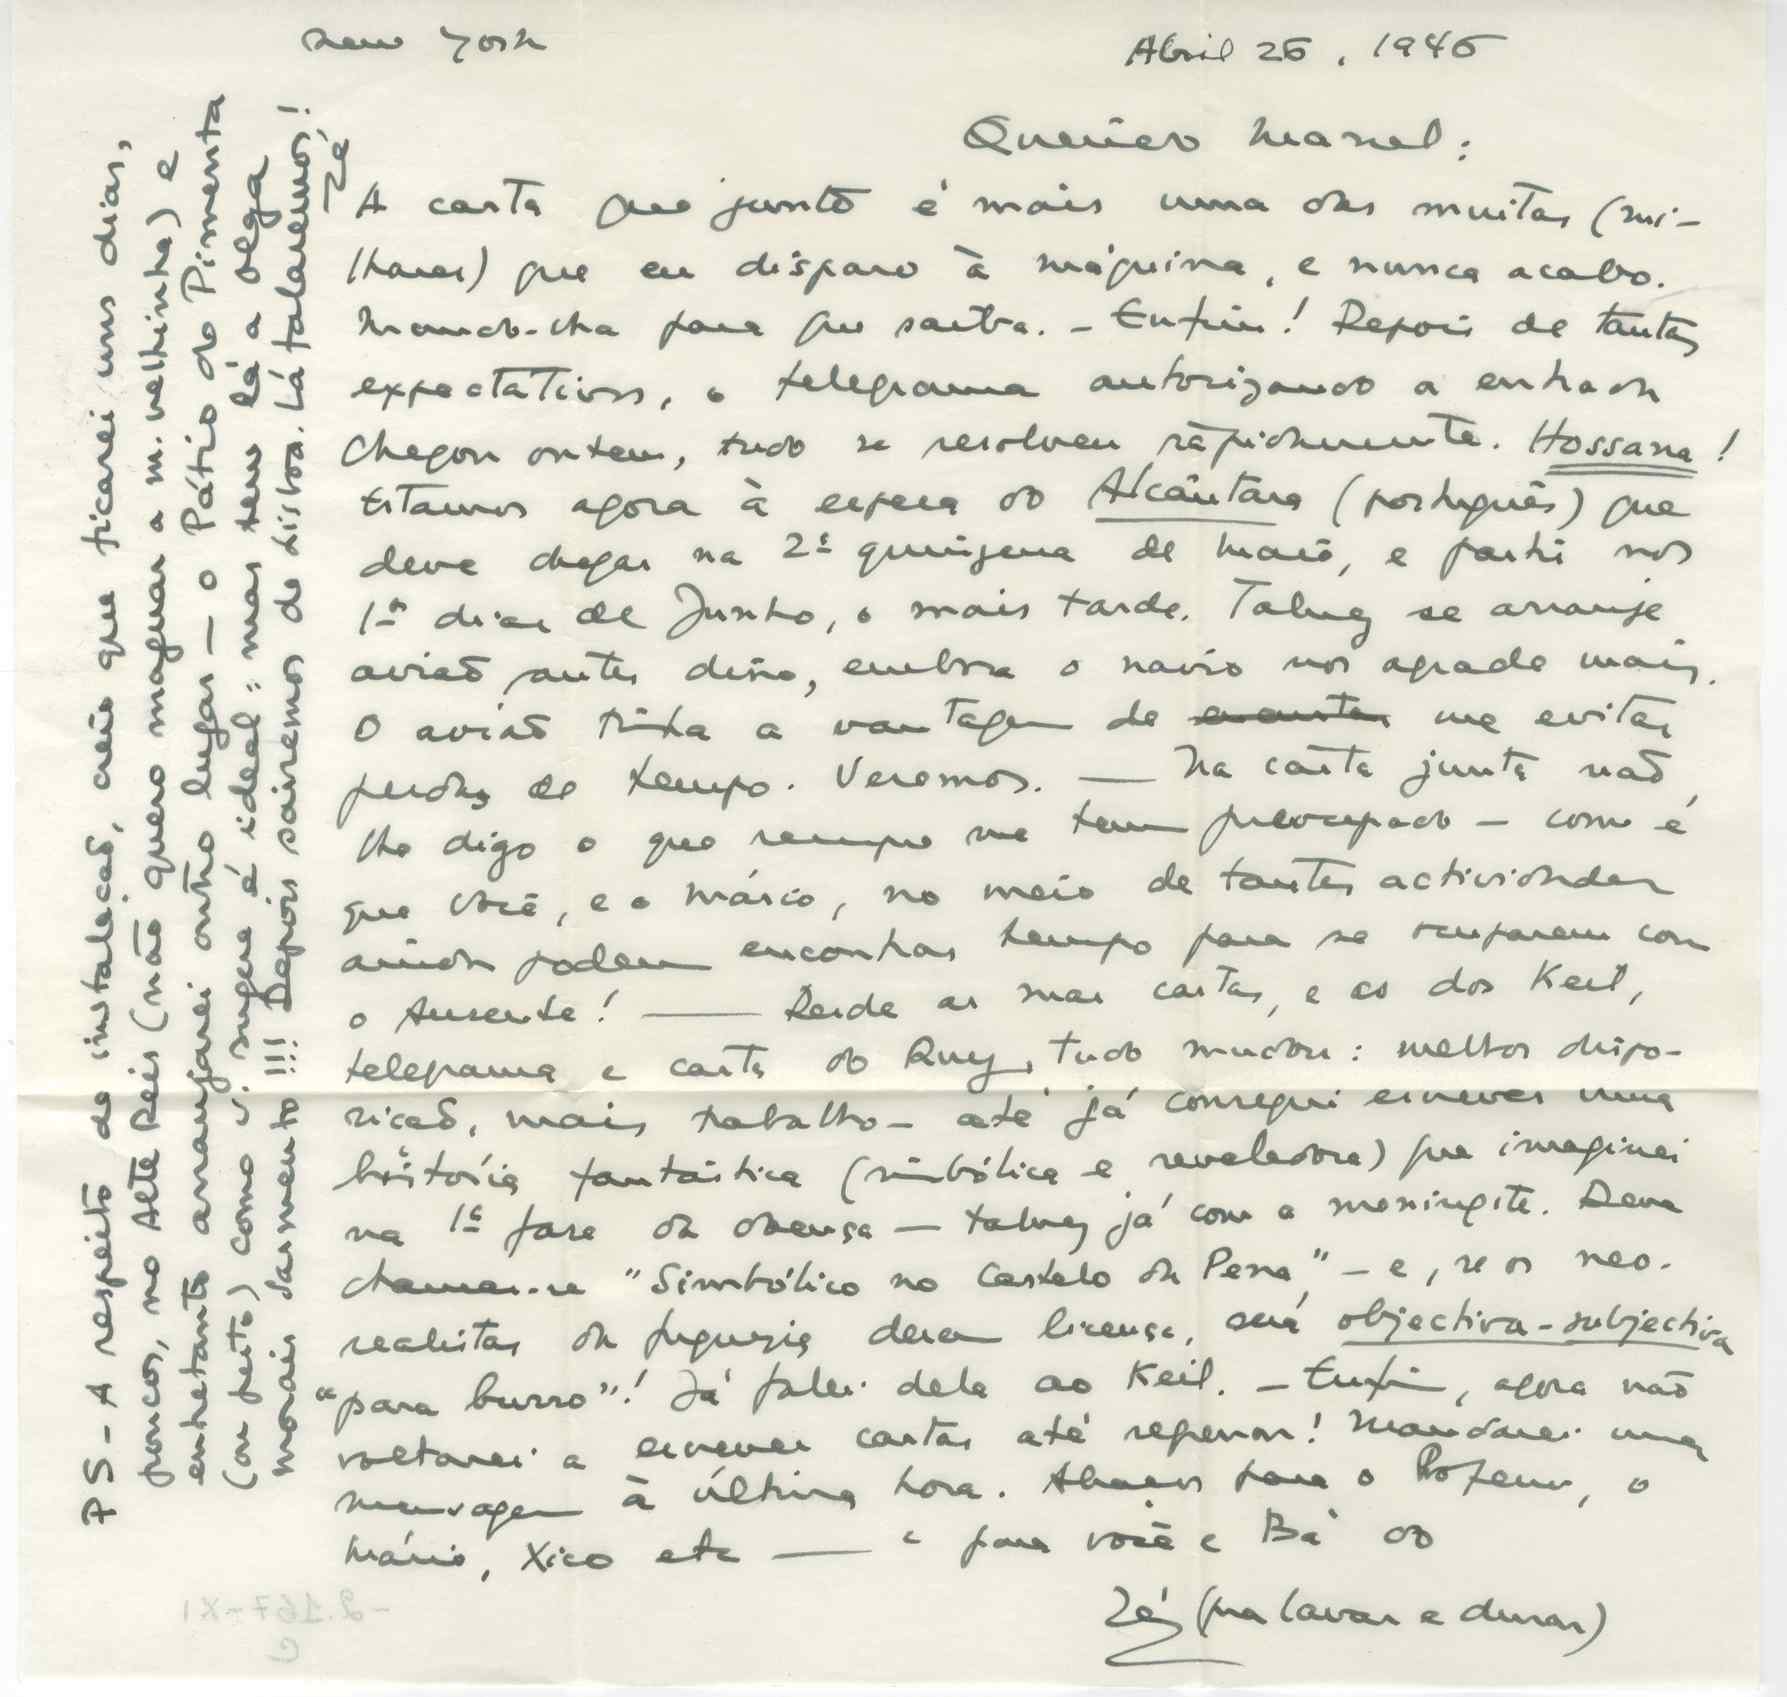 New York
Abril 26, 1946
Querido Manel:
A carta que junto é mais uma das muitas (mi-
lhares) que eu disparo à máquina, e nunca acabo.
Mando-lha para que saiba. - Enfim! Depois de tantas
expectativas, o telegrama autorizando a entrada
chegou ontem, tudo se resolveu ràpidamente. Hossana!
Estamos agora à espera do Alcântara (português) que
deve chegar na 2ª quinzena de Maio, e partir nos
1ºs dias de Junho, o mais tarde. Talvez se arranje
avião antes disso, embora o navio nos agrade mais.
O avião tinha a vantagem de me evitar
perdas de tempo. Veremos. — Na carta junta não
lhe digo o que sempre me tem preocupado - como é
que você, e o Mário, no meio de tantas actividades
ainda podem encontrar tempo para se ocuparem com
o Ausente! — Desde as suas cartas, e as dos Keil,
telegrama e carta do Ruy, tudo mudou: melhor dispo-
sição, mais trabalho - até já consegui escrever uma
história fantástica (simbólica e reveladora) que imaginei
na 1ª fase da doença - talvez já com a meningite. Deve
chamar-se "Simbólico no Castelo da Pena" - e, se os neo-
realistas da freguezia derem licença, será objectiva-subjectiva
"para burro"! Já falei dela ao Keil. - Enfim, agora não
voltarei a escrever cartas até regressar! Mandarei uma
mensagem à última hora. Abraços para o Professor, o
Mário, Xico etc — e para você e Bá do
Zé (pra lavar e durar)
PS - A respeito de instalação, creio que ficarei uns dias,
poucos, no Alte Reis (não quero magoar a m. velhinha) e
entretanto arranjarei outro lugar - o Pátio do Pimenta
(ou perto) como v. sugere é ideal: mas tem lá a Olga
Morais Sarmento!!! Depois sairemos de Lisboa. Lá falaremos!
Zé
-2.167-XI